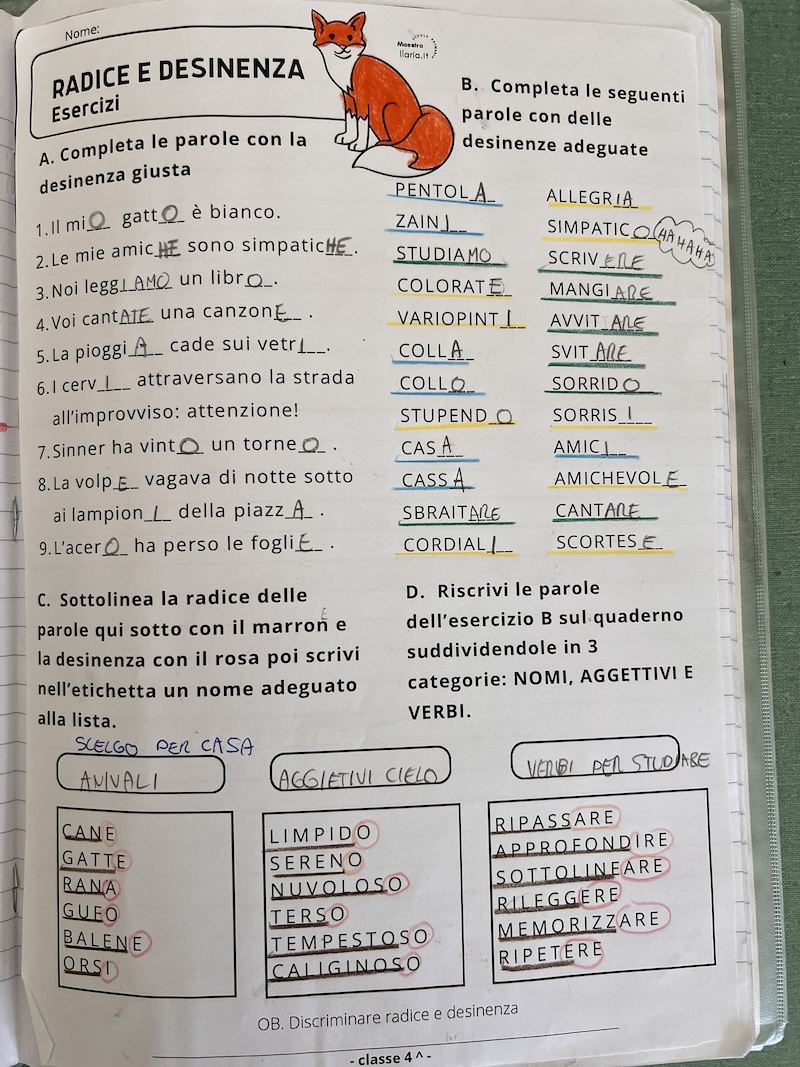 Nome:
Maestra
Ilaria.it
RADICE E DESINENZA
Esercizi
A. Completa le parole con la
desinenza giusta
1.Il miO gattO è bianco.
2.Le mie amicHE sono simpaticHE.
3.Noi leggIAMO un librO.
4.Voi cantATE una canzonE.
5.La pioggiA cade sui vetrI.
6.I cervI attraversano la strada
all'improvviso: attenzione!
7.Sinner ha vintO un torneO.
8.La volpE vagava di notte sotto
ai lampionI della piazzA.
9.L'acerO ha perso le fogliE.
B. Completa le seguenti
parole con delle
desinenze adeguate
PENTOLA
ZAINI
STUDIAMO
COLORATE
VARIOPINTI
COLLA
COLLO
STUPENDO
CASA
CASSA
SBRAITARE
CORDIALI
ALLEGRIA
SIMPATICO HAHAHA
SCRIVERE
MANGIARE
AVVITARE
SVITARE
SORRIDO
SORRISI
AMICI
AMICHEVOLE
CANTARE
SCORTESE
C. Sottolinea la radice delle
parole qui sotto con il marron e
la desinenza con il rosa poi scrivi
nell'etichetta un nome adeguato
alla lista.
D. Riscrivi le parole
dell'esercizio B sul quaderno
suddividendole in 3
categorie: NOMI, AGGETTIVI E
VERBI.
SCELGO PER CASA
ANIVALI
CANE
GATTE
RANA
GUFO
BALENE
ORSI
AGGIETIVI CIELO
LIMPIDO
SERENO
NUVOLOSO
TERSO
TEMPESTOSO
CALIGINOSO
VERBI PER STUDIARE
RIPASSARE
APPROFONDIRE
SOTTOLINEARE
RILEGGERE
MEMORIZZARE
RIPETERE
OB. Discriminare radice e desinenza
- classe 4^ -